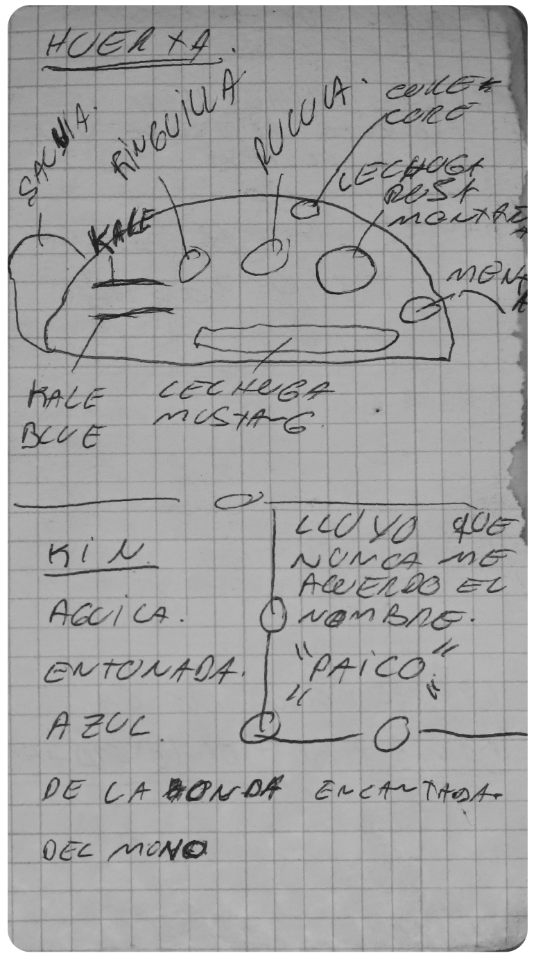 HUERTA.
SALVIA.
RINGUILLA
RUCULA.
CORE K
CORE
KALE
LECHUGA
ROSA
MONTAÑA
MENTA
KALE
BLUE
LECHUGA
MUSTANG
KIN
AGUILA.
ENTONADA.
AZUL.
DE LA HONDA ENCANTADA.
DEL MONO
LLUYO QUE
NUNCA ME
ACUERDO EL
NOMBRE.
"PAICO"